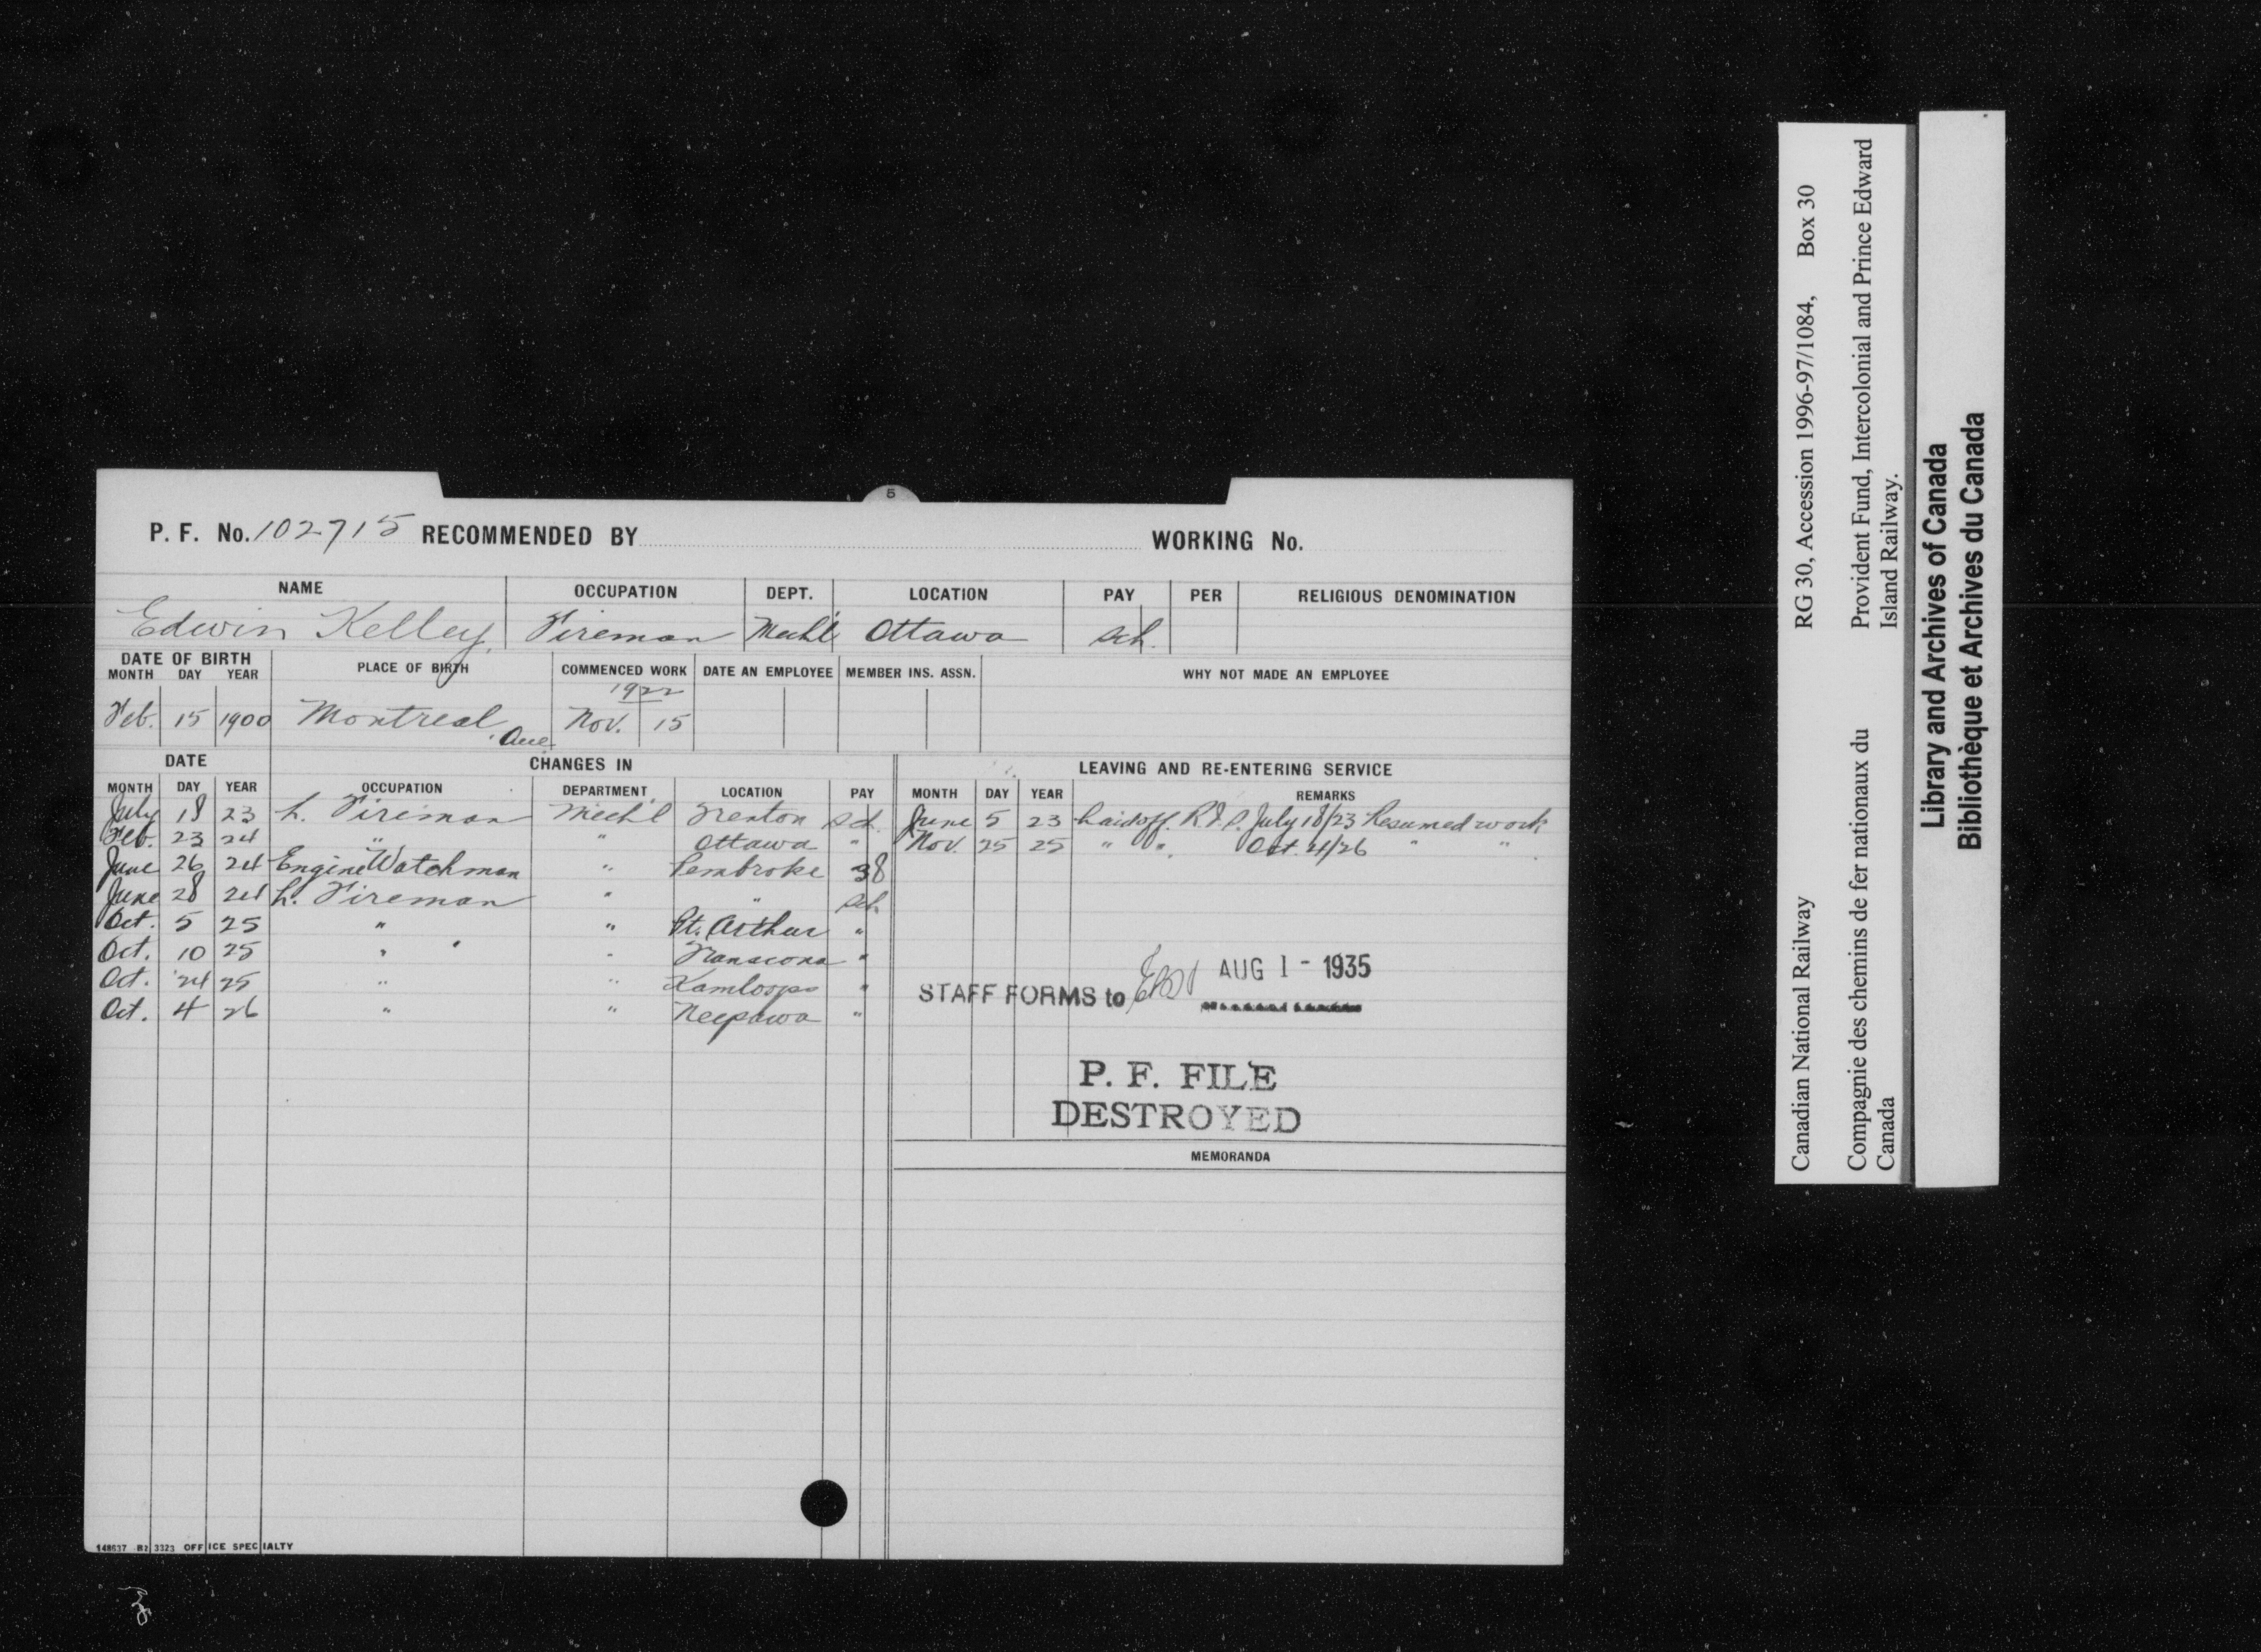 5
P. F. No. 102715 RECOMMENDED BY WORKING No.
NAME OCCUPATION DEPT. LOCATION PAY PER RELIGIOUS DENOMINATION
Edwin Kelley Fireman Mechl Ottawa sch.
DATE OF BIRTH PLACE OF BIRTH COMMENCED WORK DATE AN EMPLOYEE MEMBER INS. ASSN. WHY NOT MADE AN EMPLOYEE
MONTH DAY YEAR
1922
Feb. 15 1900 Montreal, Que. Nov. 15
DATE CHANGES IN LEAVING AND RE-ENTERING SERVICE
MONTH DAY YEAR OCCUPATION DEPARTMENT LOCATION PAY MONTH DAY YEAR REMARKS
July 18 23 L. Fireman Mechl Trenton Sch. June 5 23 Laidoff. R.F.S. July 18/23 Resumed work
Feb. 23 24 " " Ottawa " Nov. 25 25 " " Oct. 4/26 " "
June 26 24 Engine Watchman " Pembroke 38
June 28 24 L. Fireman " " Sch
Oct. 5 25 " " Pt. Arthur "
Oct. 10 25 " " " Transcona "
Oct. 24 25 " " Kamloops "
Oct. 4 26 " " Neepawa "
AUG 1 - 1935
STAFF FORMS to
P. F. FILE
DESTROYED
MEMORANDA
148637 B2 3323 OFFICE SPECIALTY
Canadian National Railway RG 30, Accession 1996-97/1084, Box 30
Compagnie des chemins de fer nationaux du Provident Fund, Intercolonial and Prince Edward
Canada Island Railway.
Library and Archives of Canada
Bibliothèque et Archives du Canada